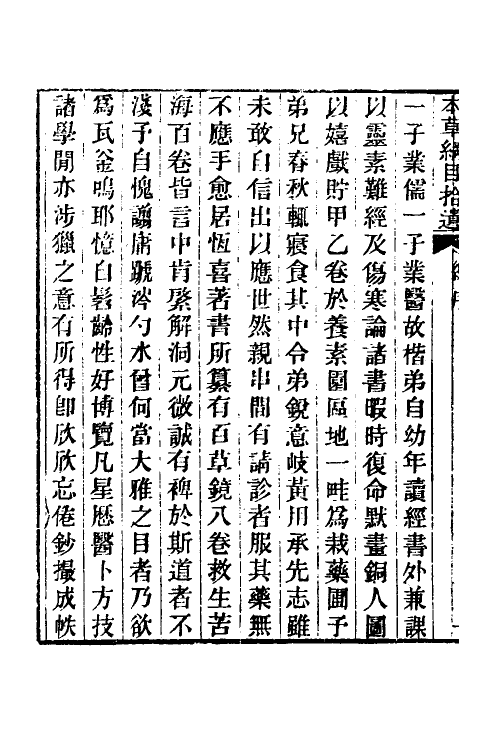 本草綱目拾遺
一子業儒一子業醫故楷弟自幼年讀經書外兼課
以靈素難經及傷寒論諸書暇時復命默畫銅人圖
以嬉戲貯甲乙卷於養素園區地一畦為栽藥圃予
弟兄春秋輒寢食其中令弟銳意岐黃用承先志雖
未敢自信出以應世然親串間有請診者服其藥無
不應手愈居恆喜著書所纂有百草鏡八卷救生苦
海百卷皆言中肯綮解洞元微誠有裨於斯道者不
淺予自愧譾庸蹏涔勺水曾何當大雅之目者乃欲
為瓦釜鳴耶憶自髫齡性好博覽凡星厯醫卜方技
諸學間亦涉獵之意有所得卽欣欣忘倦鈔撮成帙